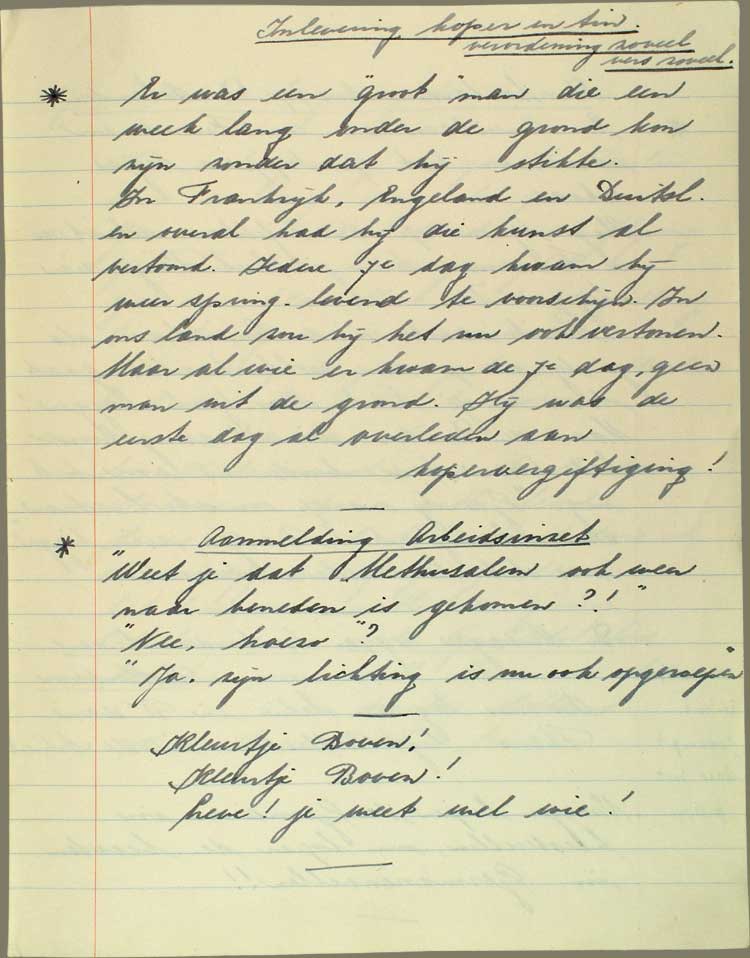 Inlevering koper en tin.
verordening zoveel
vers zoveel.
Er was een "groot" man die een
week lang onder de grond kon
zijn zonder dat hij stikte.
In Frankrijk, Engeland en Duitsl.
en overal had hij die kunst al
vertoond. Iedere 7e dag kwam hij
weer spring-levend te voorschijn. In
ons land zou hij het nu ook vertonen.
Maar al wie er kwam de 7e dag, geen
man uit de grond. Hij was de
eerste dag al overleden aan
kopervergiftiging!
Aanmelding Arbeidsinzet
"Weet je dat Methusalem ook weer
naar beneden is gekomen?!"
"Nee, hoezo"?
"Ja, zijn lichting is nu ook opgeroepen"
Kleurtje Boven!
Kleurtje Boven!
Leve! je weet wel wie!